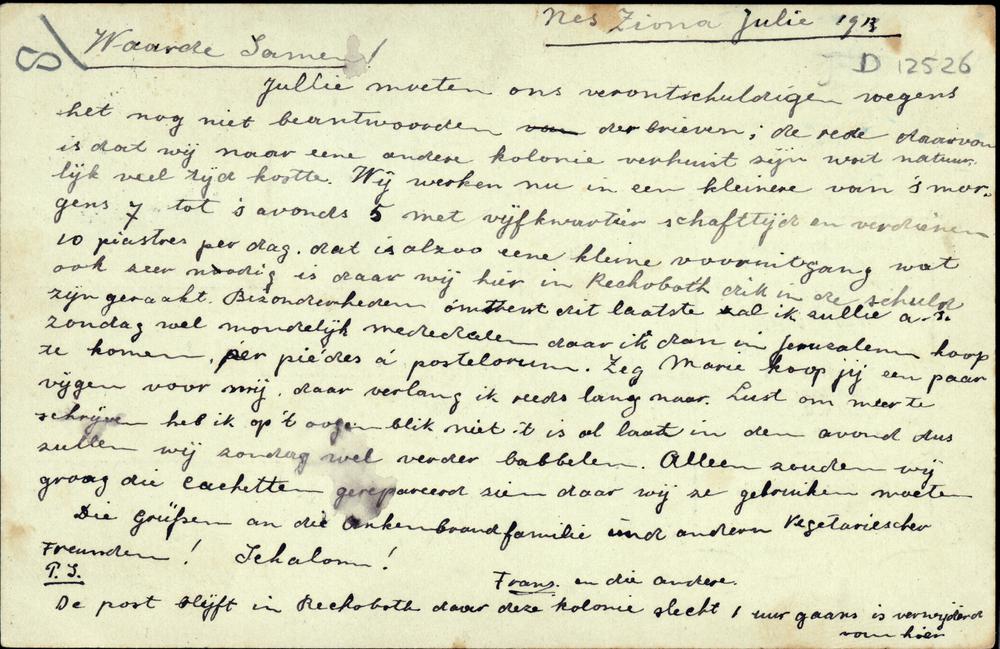 Nes Ziona Julie 1913
8/
D 12526
Waarde Samen!
Jullie moeten ons verontschuldigen wegens
het nog niet beantwoorden van der brieven; de rede daarvan
is dat wij naar eene andere kolonie verhuist zijn wat natuur-
lijk veel tijd kostte. Wij werken nu in een kleinere van 's mor-
gens 7 tot 's avonds 5 met vijfkwartier schafttijd en verdienen
10 piastres per dag. dat is alzoo eene kleine vooruitgang wat
ook zeer noodig is daar wij hier in Rechoboth dik in de schuld
zijn geraakt. Bizonderheden omtrent dit laatste zal ik zullie a.s.
zondag wel mondelijk mededeelen daar ik dan in Jeruzalem hoop
te komen, per piedres á postelorum. Zeg Marie koop jij een paar
vijgen voor mij. daar verlang ik reeds lang naar. Lust om meer te
schrijven heb ik op 't oogenblik niet 't is al laat in den avond dus
zullen wij zondag wel verder babbelen. Alleen zouden wij
graag die cachetten gerepareerd zien daar wij ze gebruiken moeten
Die Grüßen an die Ankenbrandfamilie und andern Vegetariescher
Freunden! Schalom!
Frans. en die andere.
P.S.
De post blijft in Rechoboth daar deze kolonie slecht 1 uur gaans is verwijderd
van hier